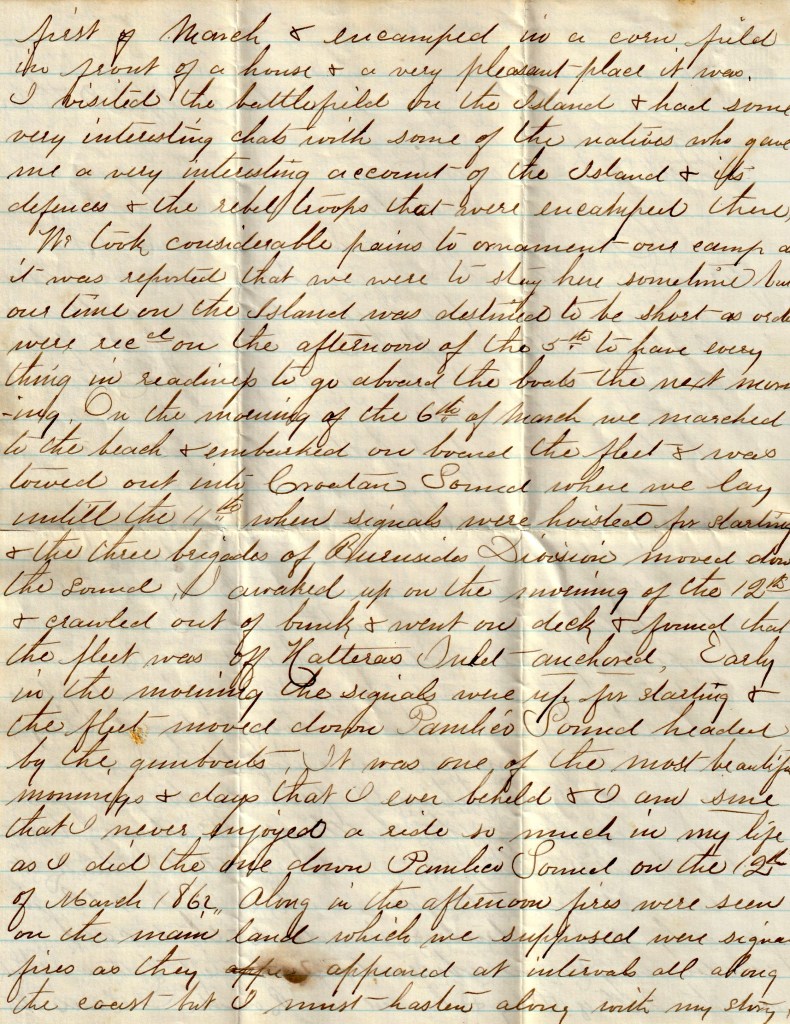 first of March & encamped in a corn field
in front of a house & a very pleasant place it was.
I visited the battlefield on the Island & had some
very interesting chats with some of the natives who gave
me a very interesting account of the Island & its
defences & the rebel troops that were encamped there,
We took considerable pains to ornament our camp a
it was reported that we were to stay here sometime bu
our time on the Island was destined to be short as orde
were recd on the afternoon of the 5th to have every
thing in readiness to go aboard the boats the next morn
-ing. On the morning of the 6th of March we marched
to the beach & embarked on board the fleet & was
towed out into Croatan Sound where we lay
untill the 11th when signals were hoisted for starting
& the three brigades of Burnsides Division moved down
the Sound. I awaked up on the morning of the 12th
& crawled out of bunk & went on deck & found that
the fleet was off Hatteras Inlet anchored, Early
in the morning the signals were up for starting &
the fleet moved down Pamlico Sound headed
by the gunboats. It was one of the most beautifu
mornings & days that I ever beheld & I am sure
that I never enjoyed a ride so much in my life
as I did the one down Pamlico Sound on the 12th
of March 1862, Along in the afternoon fires were seen
on the main land which we supposed were signa
fires as they appeared at intervals all along
the coast but I must hasten along with my story,